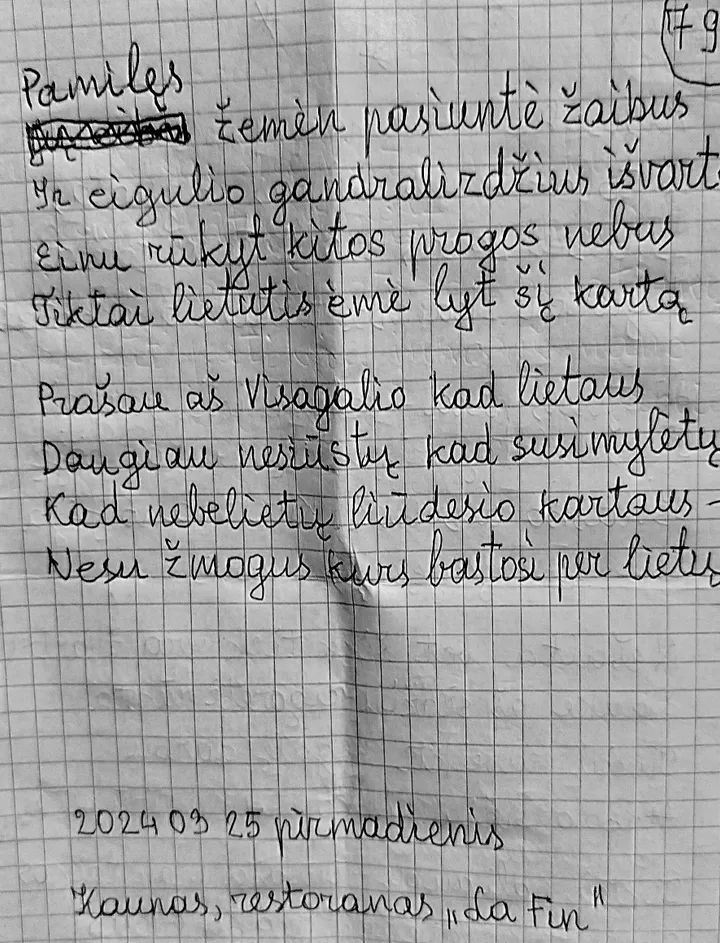 79
Pamilęs
žemėn pasiuntė žaibus
Ir eigulio gandralizdžius išvart
Einu rūkyt kitos progos nebus
Tiktai lietutis ėmė lyt šį kartą
Prašau aš Visagalio kad lietaus
Daugiau nesiųstų kad susimylėtų
Kad nebelietų liūdesio kartaus -
Nesu žmogus kurs bastosi per lietų
2024 03 25 pirmadienis
Kaunas, restoranas „La Fin"